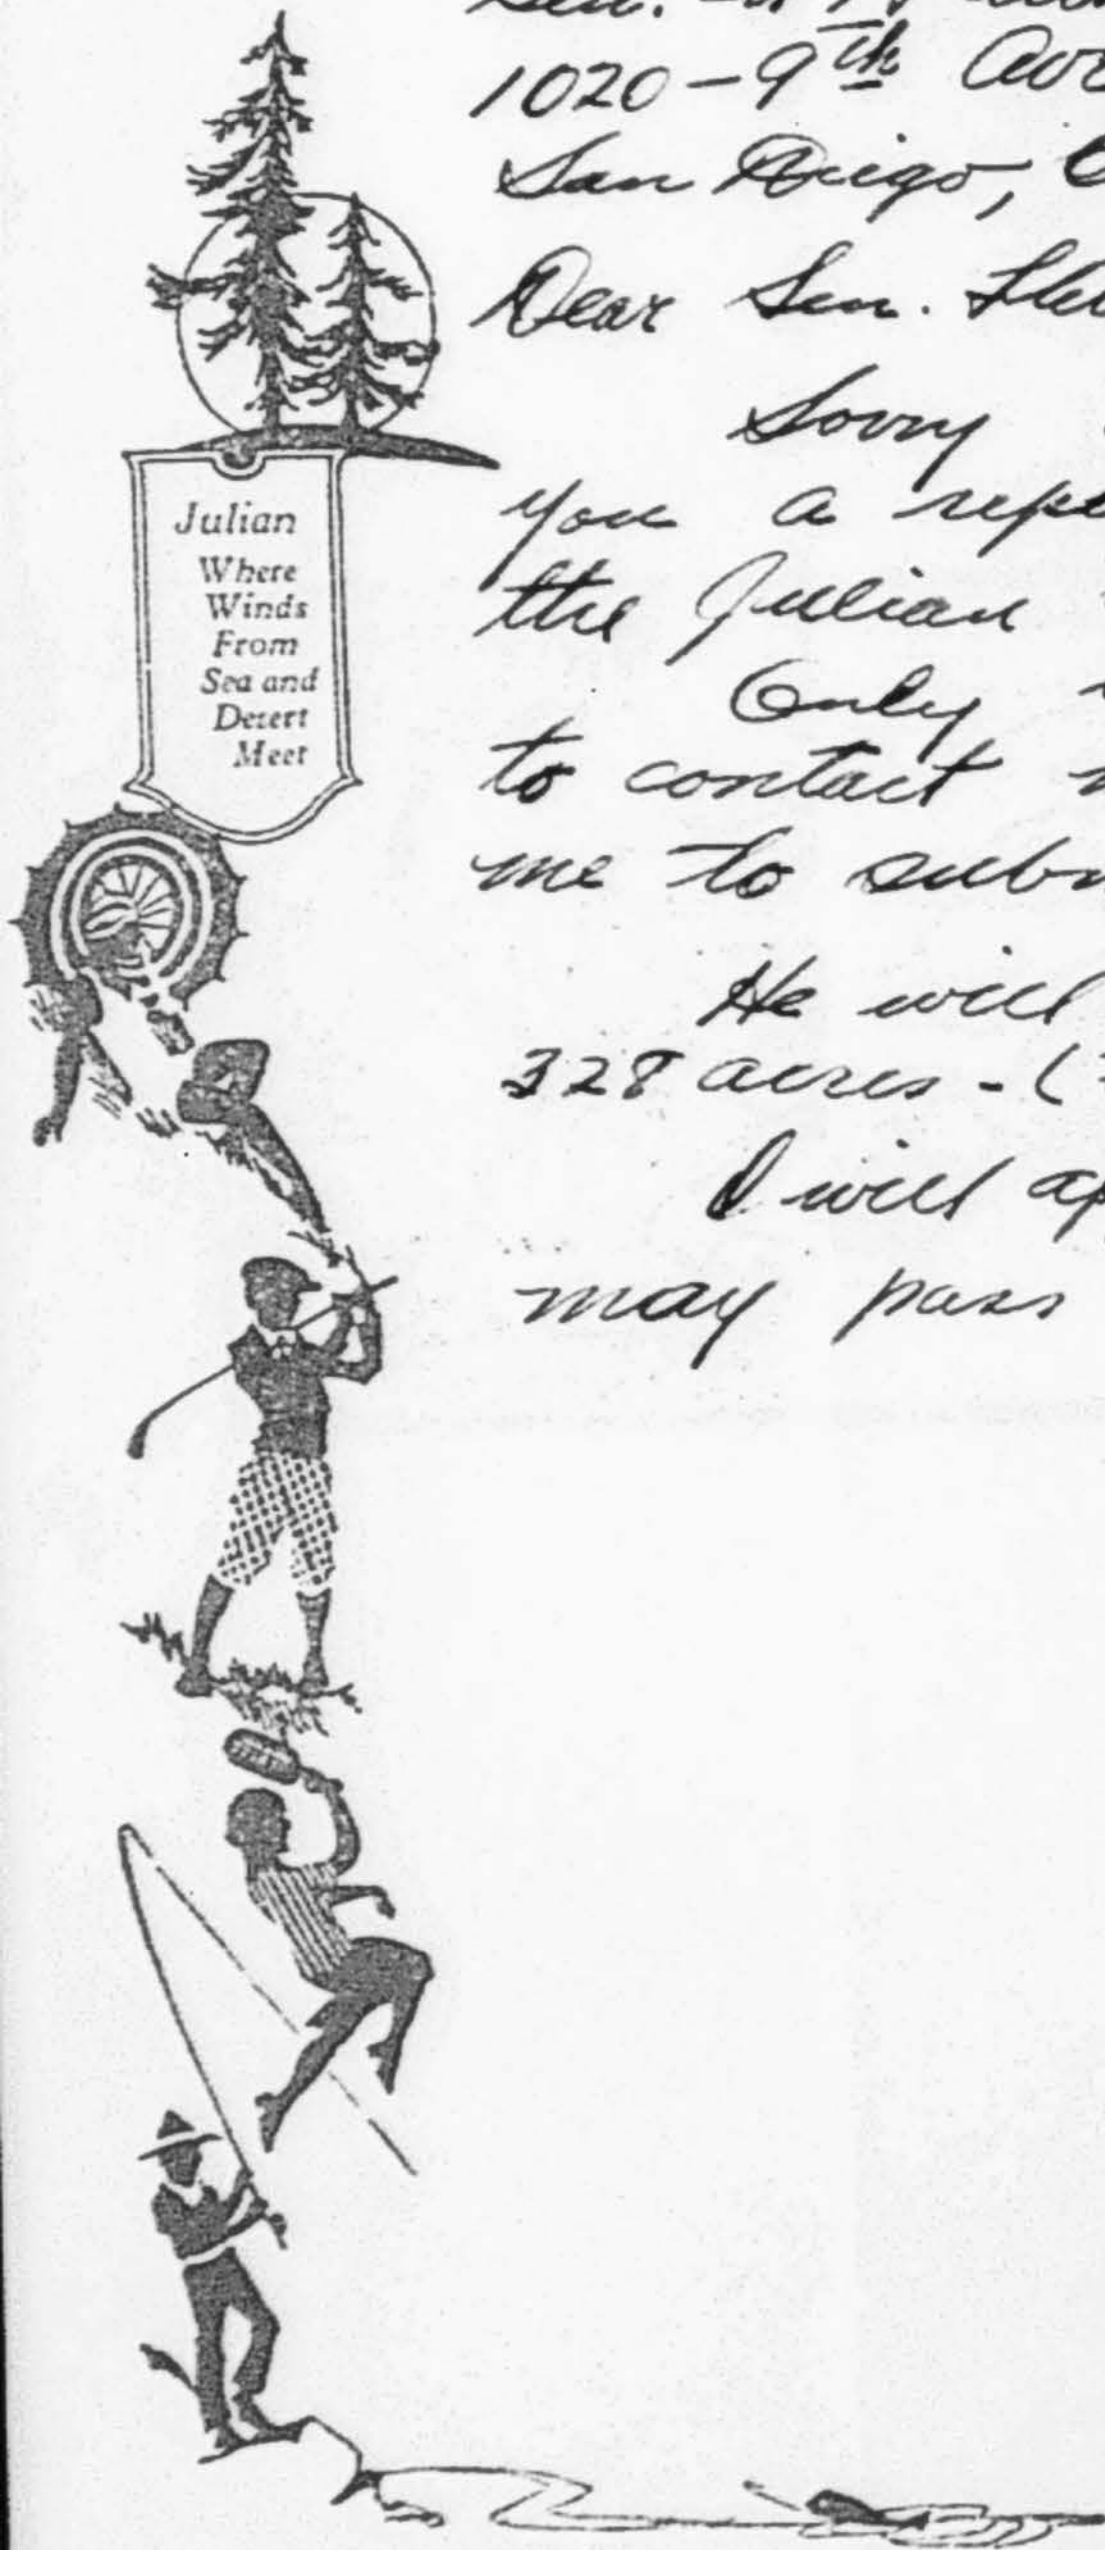 Sen.
1020 - 9th Ave
San Diego,
Dear Sen.
Sorry
you a
the Julian
Only
to contact
me to
He will
328 acres - (
I will
may pass
Julian
Where
Winds
From
Sea and
Desert
Meet